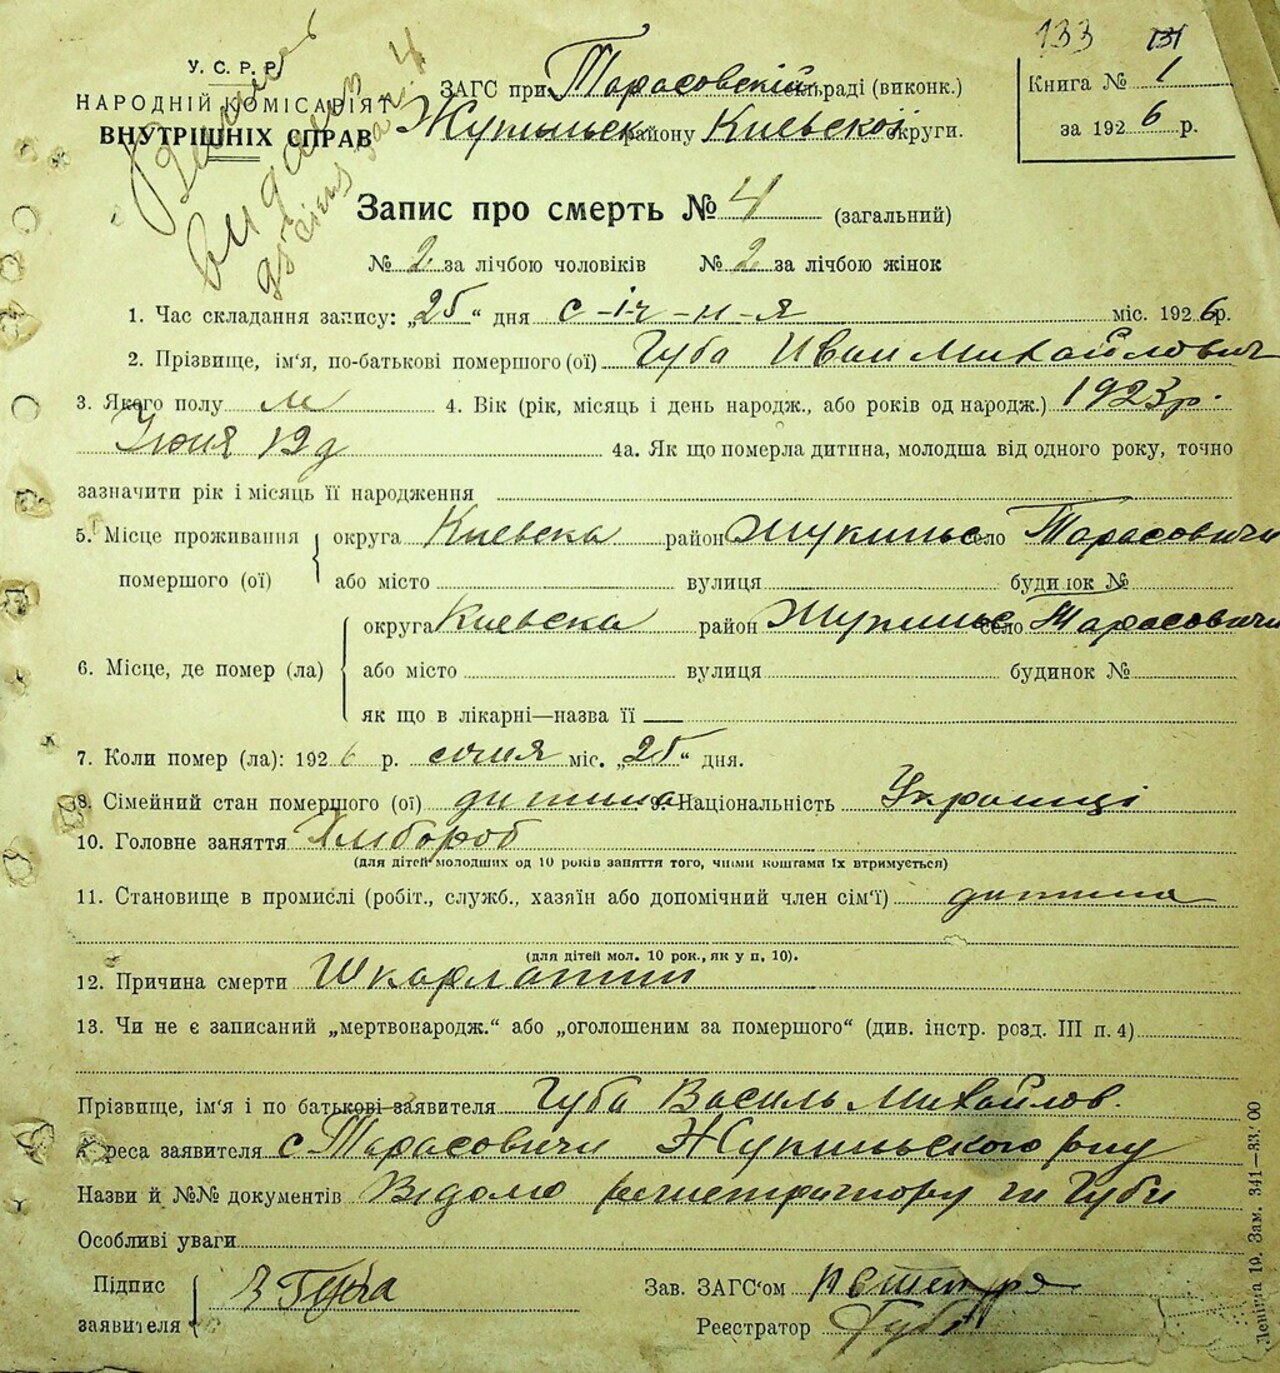 133 131
У. С. Р. Р.
НАРОДНІЙ КОМІСАРІЯТ
ВНУТРІШНІХ СПРАВ
ЗАГС при Тарасовській сільраді (виконк.)
району Киевської округи.
Книга № 1
за 1926 р.
Запис про смерть № 4 (загальний)
№ 2 за лічбою чоловіків № 2 за лічбою жінок
1. Час складання запису: „25“ дня с-іч-н-я міс. 1926р.
2. Прізвище, ім'я, по-батькові помершого (ої) Губа Иван Михайлович
3. Якого полу м 4. Вік (рік, місяць і день народж., або років од народж.) 1923р.
Июня 12д 4а. Як що померла дитина, молодша від одного року, точно
зазначити рік і місяць її народження
5. Місце проживання помершого (ої) округа Киевска район село Тарасовичи
або місто вулиця будинок №
6. Місце, де помер (ла) округа Киевска район село Тарасовичи
або місто вулиця будинок №
як що в лікарні—назва її
7. Коли помер (ла): 1926 р. січня міс. „25“ дня.
8. Сімейний стан помершого (ої) дитина 9. Національність Украинці
10. Головне заняття Хлибороб
(для дітей молодших од 10 років заняття того, чиїми коштами їх втримується)
11. Становище в промислі (робіт., служб., хазяїн або допомічний член сім'ї) дитина
(для дітей мол. 10 рок., як у п. 10).
12. Причина смерти Шкарлатин
13. Чи не є записаний „мертвонародж.“ або „оголошеним за помершого“ (див. інстр. розд. III п. 4)
Прізвище, ім'я і по батькові заявителя Губа Василь Михайлов.
Адреса заявителя с Тарасовичи Жукинського р-ну
Назви й №№ документів Відомо регистратору ги Губи
Особливі уваги
Підпис заявителя В Губа
Зав. ЗАГС'ом
Реєстратор Губа
Зам. 341—33.00